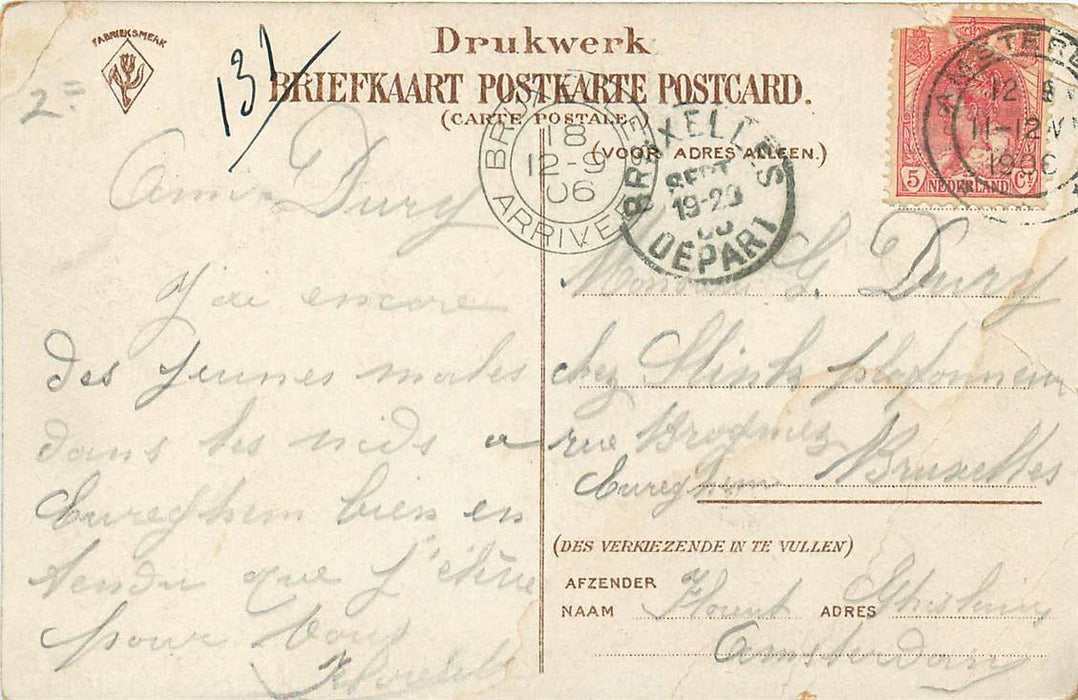 FABRIEKSMERK
Drukwerk
BRIEFKAART POSTKARTE POSTCARD.
(CARTE POSTALE.)
(VOOR ADRES ALLEEN.)
2=
131
18
12-9
06
ARRIVEE
BRUXELLES
SEPT
19-20
DEPART
AMSTER
12
11-12 V
1906
5 NEDERLAND Ct
Ami Dury
J'ai encore
des jeunes mâles
dans les nids a
Cureghem bien en
tendu que j'élève
pour vous
Monsieur G. Dury
chez Slinks plafonneur
rue Brogniez Bruxelles
Cureghem
(DES VERKIEZENDE IN TE VULLEN)
AFZENDER
NAAM Florent ADRES
Amsterdam